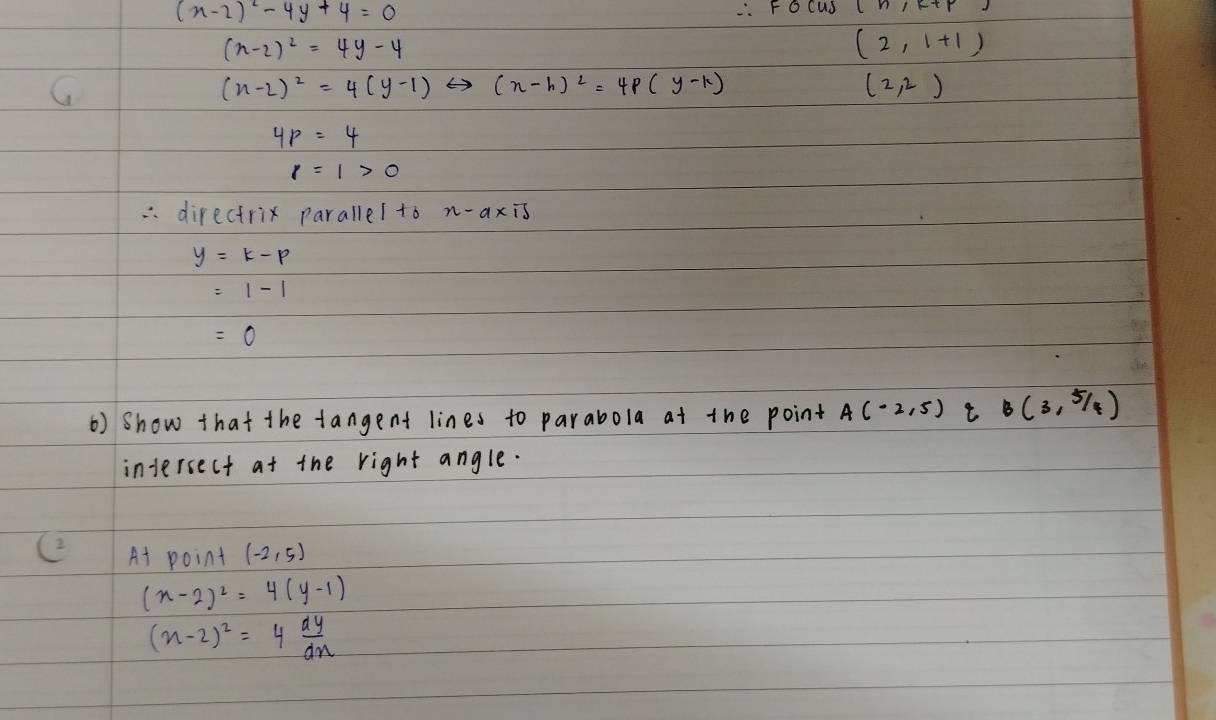 (x-2)² - 4y + 4 = 0
∴ Focus (h, k+p)
(x-2)² = 4y - 4
(2, 1+1)
(x-2)² = 4(y-1) ↔ (x-h)² = 4p(y-k)
(2,2)
4p = 4
p = 1 > 0
∴ directrix parallel to x-axis
y = k - p
= 1 - 1
= 0
b) Show that the tangent lines to parabola at the point A(-2,5) & B(3, 5/4)
intersect at the right angle.
2
At point (-2,5)
(x-2)² = 4(y-1)
(x-2)² = 4 dy/dx